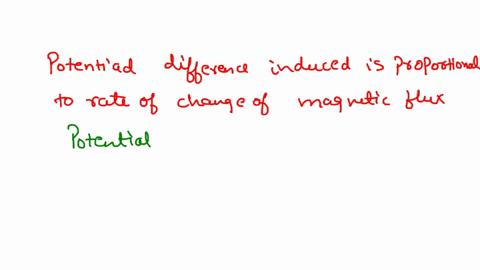 Potentiad difference induced is proportional
to rate of change of magnetic flux
Potential